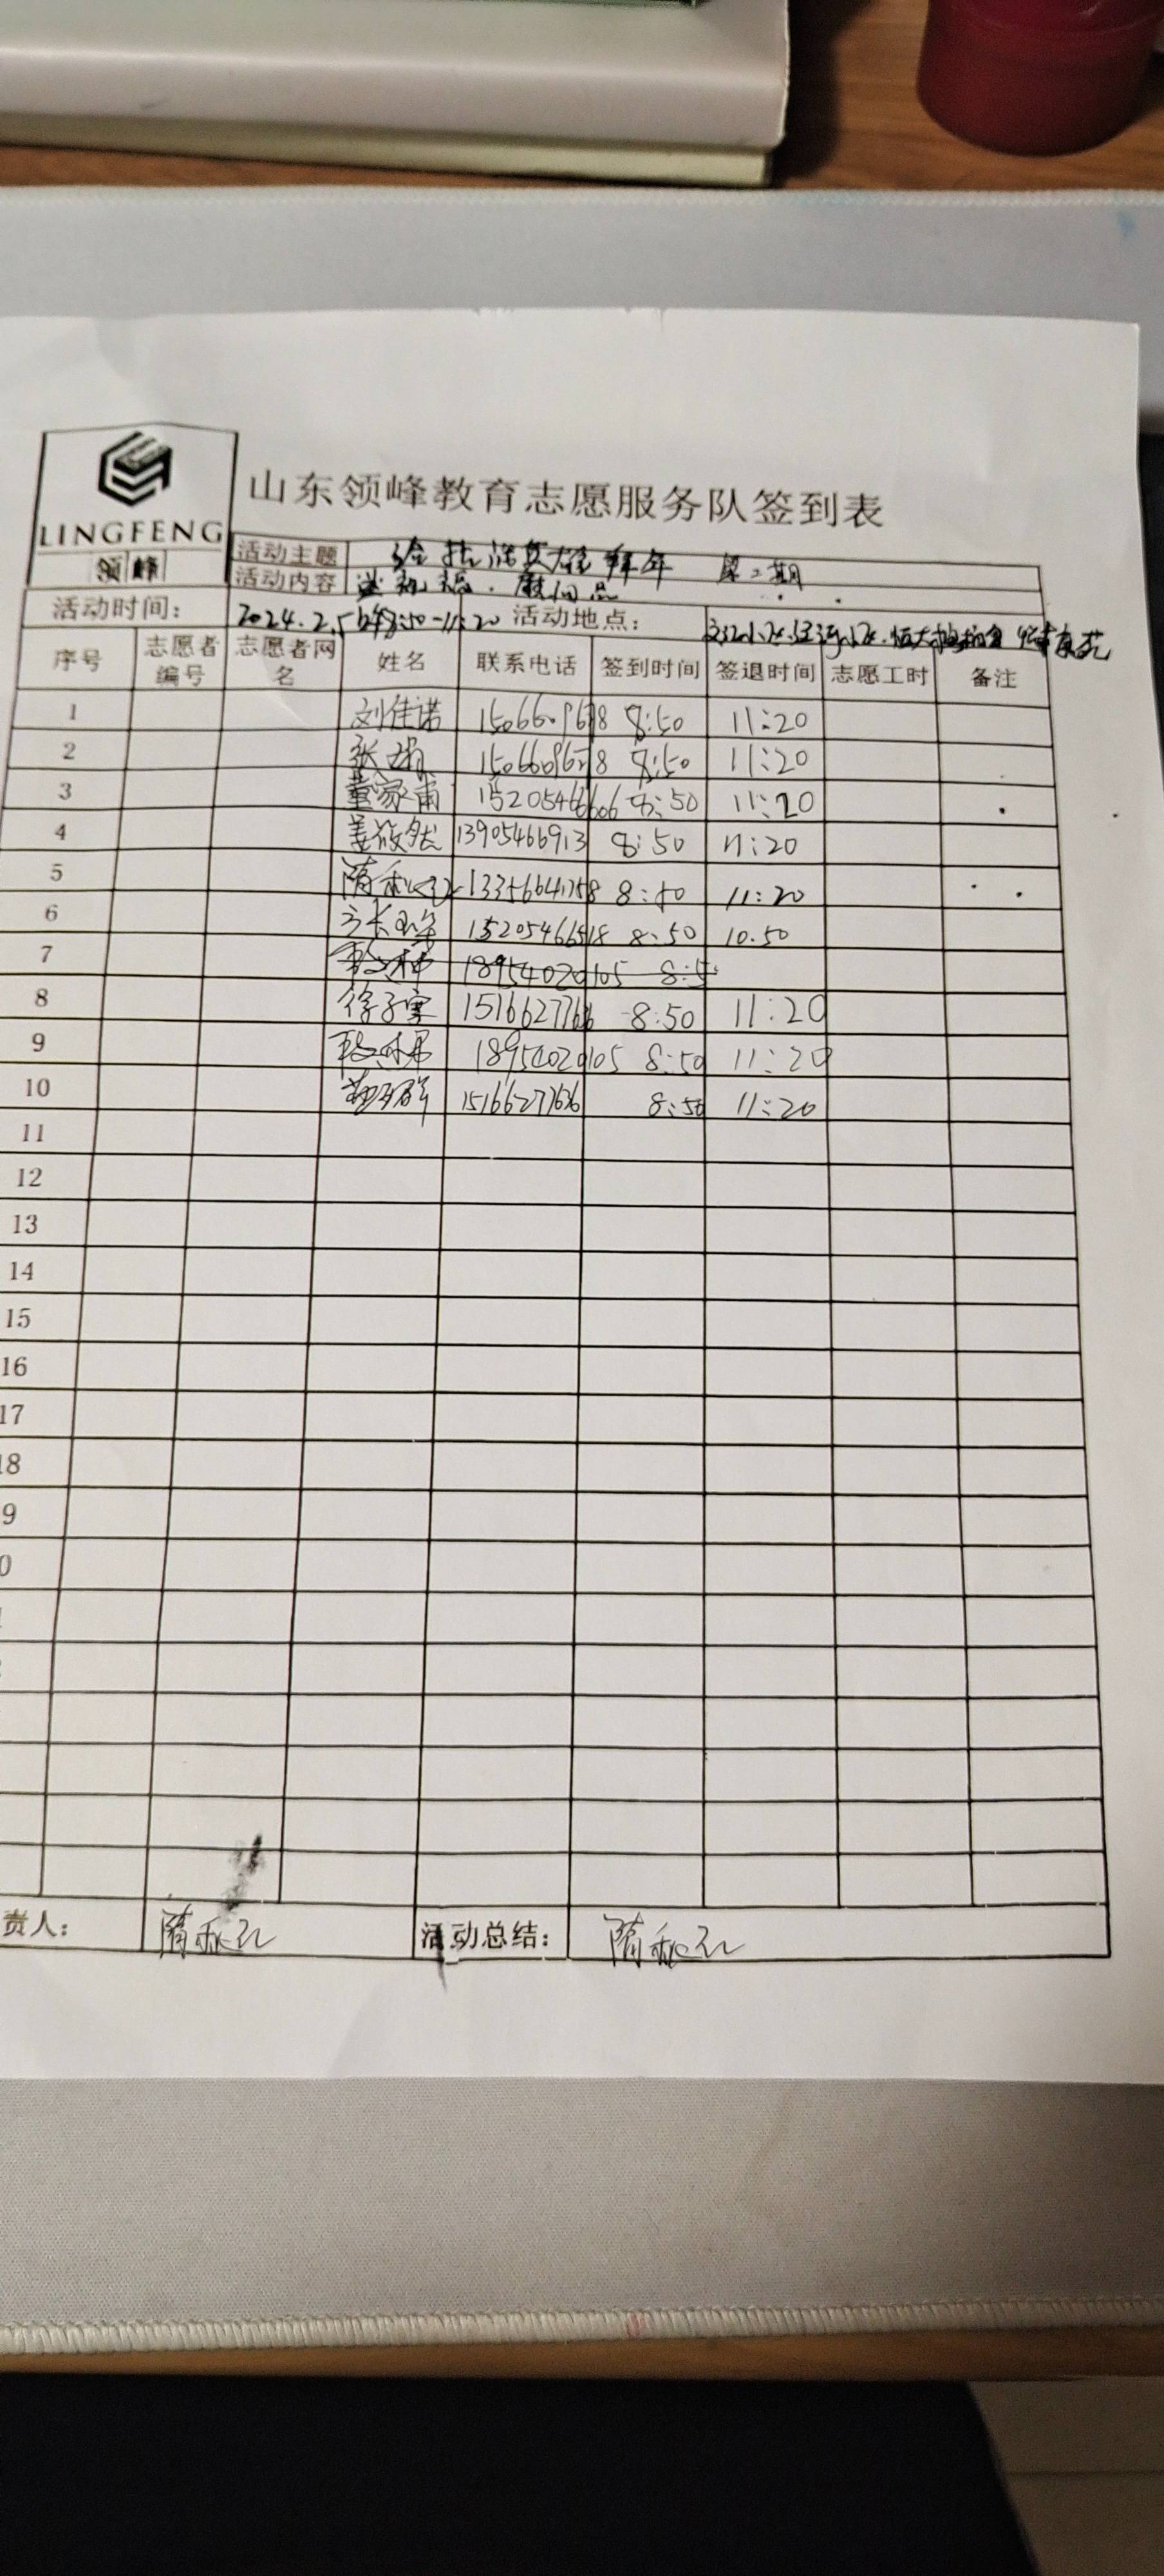 LINGFENG
领峰
山东领峰教育志愿服务队签到表
活动主题 给抗洪英雄拜年 第二期
活动内容 送祝福.慰问品
活动时间: 2024.2.5 8:50-11:20 活动地点:
序号 志愿者编号 志愿者网名 姓名 联系电话 签到时间 签退时间 志愿工时 备注
1 刘佳诺 15066096718 8:50 11:20
2 张娟 15066096718 8:50 11:20
3 董家甫 15205466606 8:50 11:20
4 姜筱然 13905466913 8:50 11:20
5 隋秋红 8:50 11:20
6 15205466518 8:50 10.50
7 18954020105 8:5
8 徐子雯 15166277636 8:50 11:20
9 18954020105 8:50 11:20
10 15166277636 8:50 11:20
11
12
13
14
15
16
17
18
9
0
责人: 隋秋红 活动总结: 隋秋红